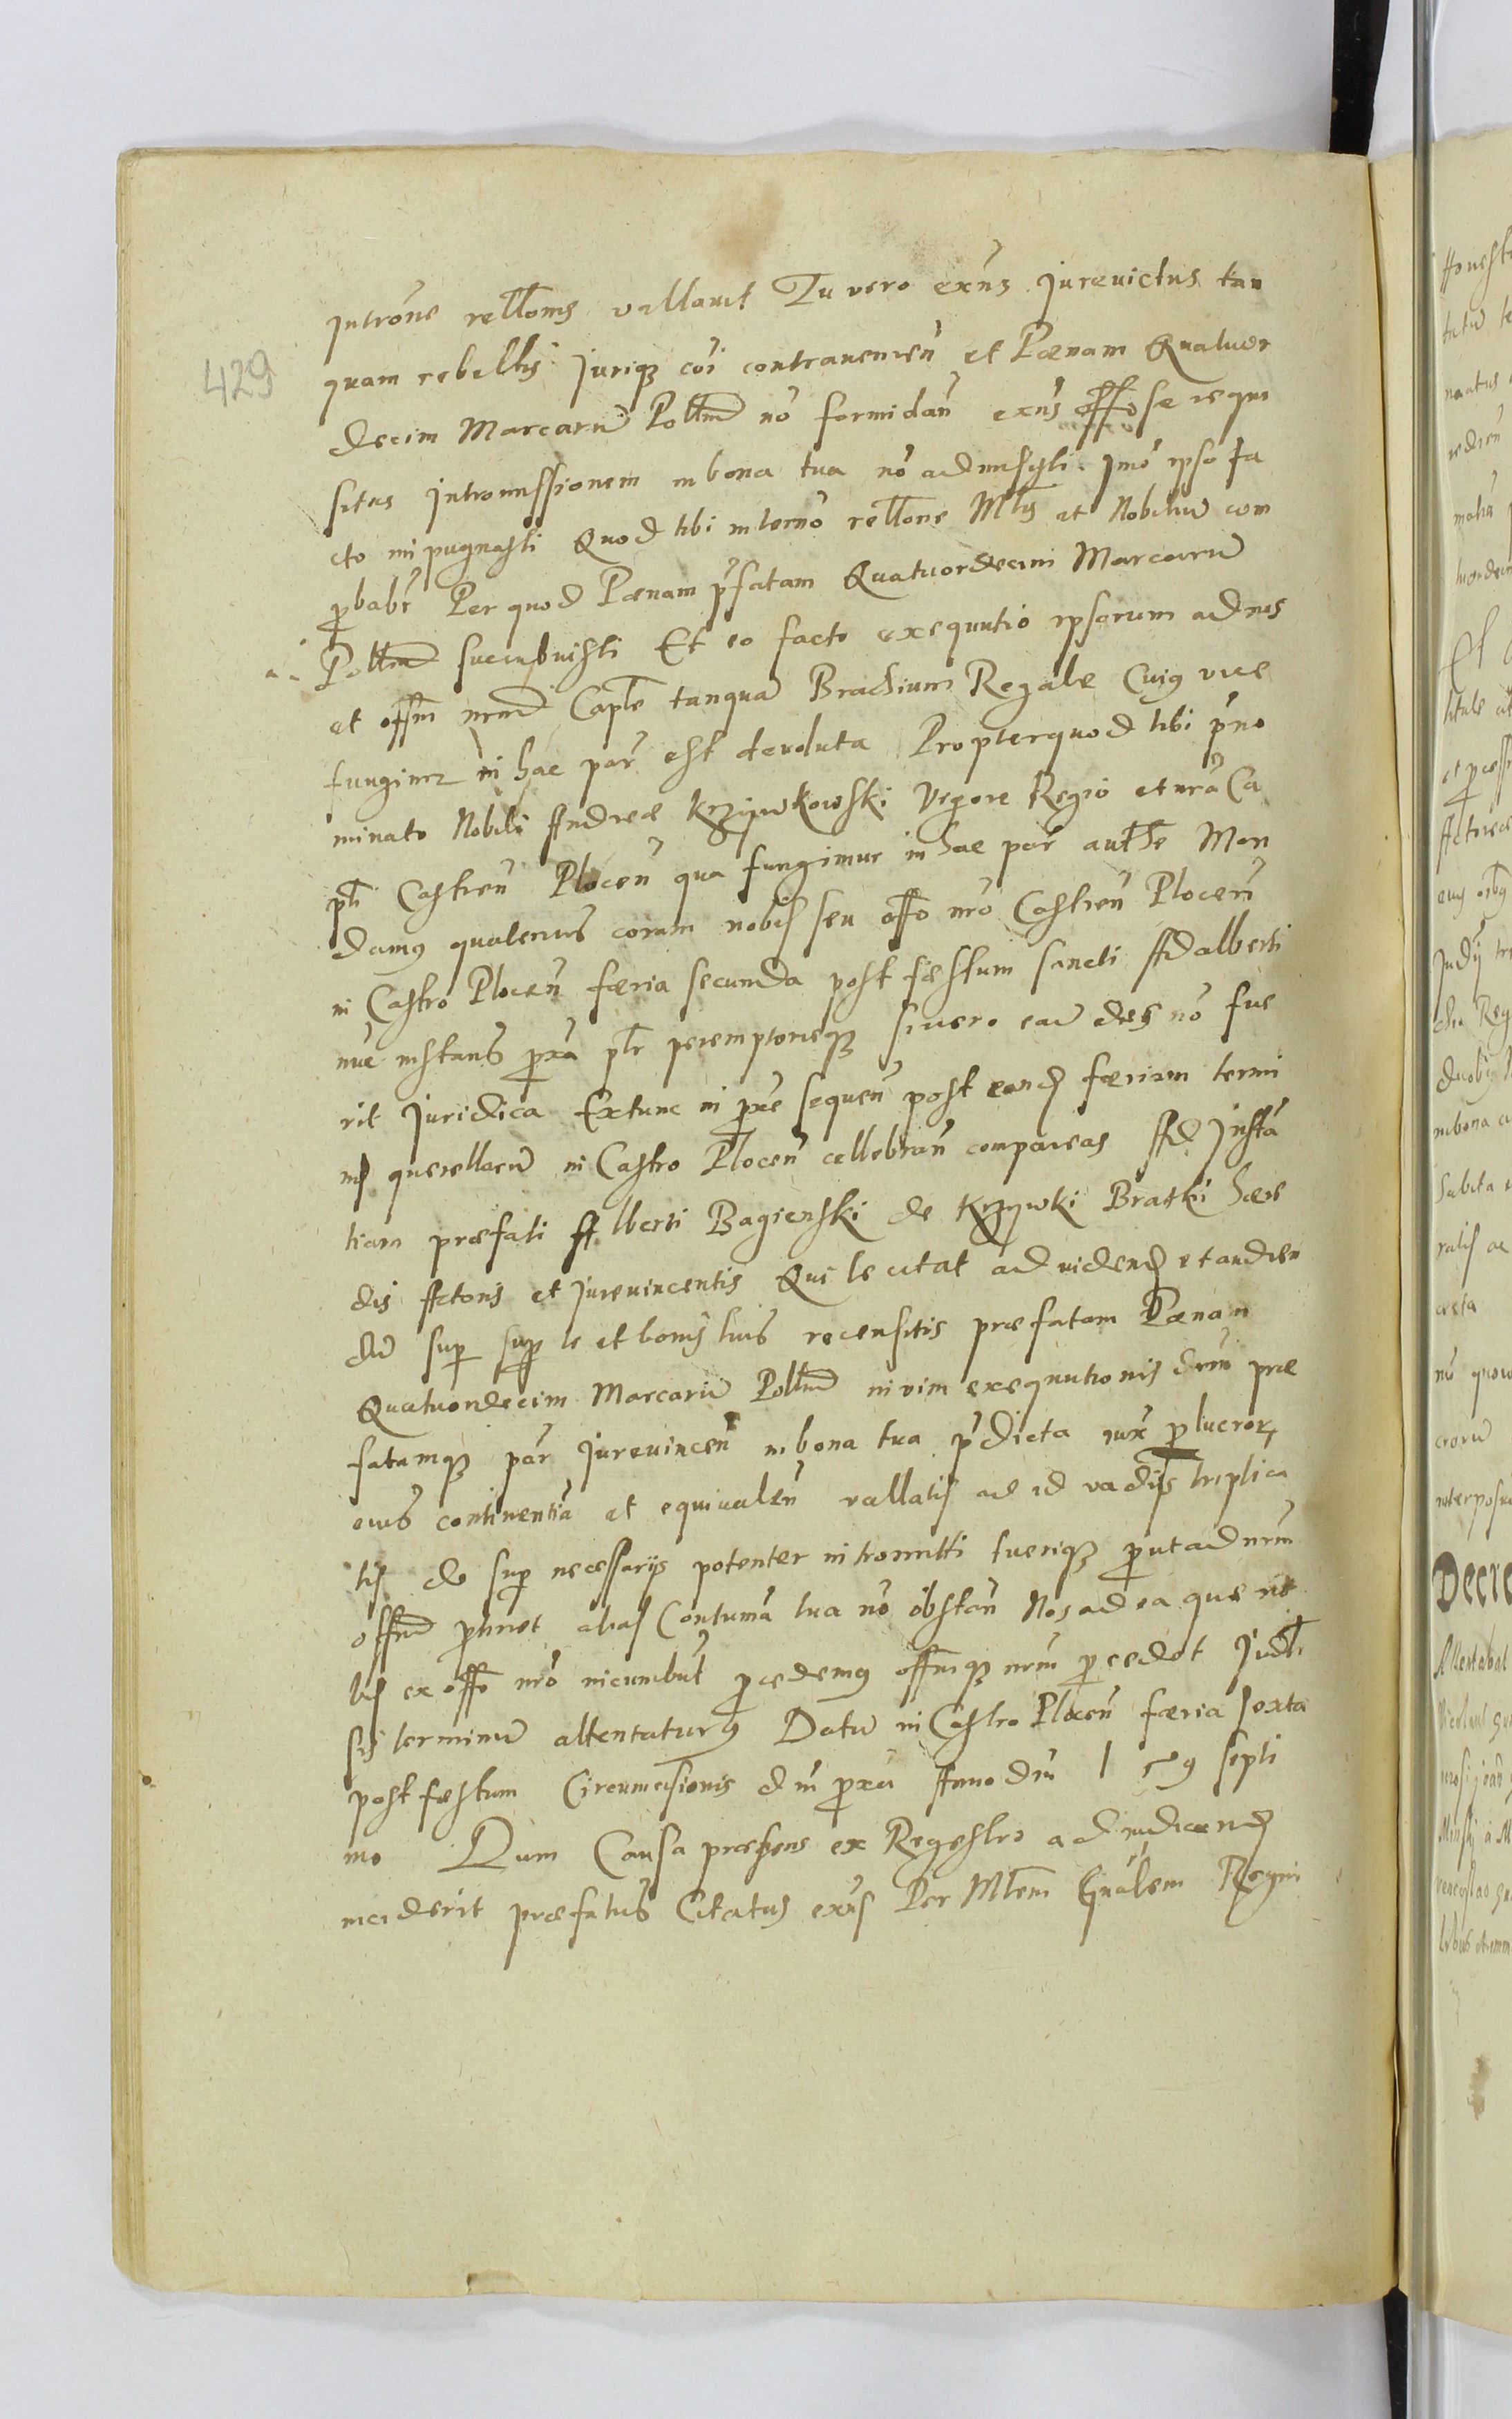 429
introne rellonis vallavit Tu vero exns Jurevictus tan
quam rebellis Juriq coi contravenien et Paenam Quatuor
decim Marcaru Pollm no formidan exns offose requi
situs intromissionem in bona tua no admisisti imo ipso fa
cto impugnasti Quod tibi in termo rellone Mlis et Nobiliu com
probabr Per quod Paenam pfatam Quatuordecim Marcaru
Pollm sucubuisti Et eo facto exequutio ipsorum ad nos
et offm nrm Caple tanqua Brachium Regale Cuig vice
fungimr in hac par est devoluta Propterquod tibi pno
minato Nobili Andreae Krzywkowski Vigore Regio et nra Ca
pli Castren Plocen qua fungimur in hac par authe Man
damg quatenus coram nobis seu offo nro Castren Plocen
in Castro Plocen faeria secunda post faestum sancti Adalberti
nuc instans pxa plr peremptorieq si vero ead dies no fue
rit Juridica Extunc in pxe sequen post eand faeriam termi
nis querellaru in Castro Plocen cellebran compareas Ad Insta
tiam praefati Alberti Bagienski de Krzywki Bratki haere
dis Actoris et Jurevincentis Qui te citat ad videnđ et audien
du sup sup te et bonis tuis recensitis praefatam Paenam
Quatuordecim Marcaru Pollm in vim exequutionis drm prae
fatamq par Jurevincen in bona tua pdicta iux plucror
eius continentia et equivalen vallatis ad id vadijs triplica
tis de sup necessarijs potenter intromitti tueriq put ad nrm
offm ptinet alias Contuma tua no obstan Nos ad ea quae no
bis ex offo nro incumbut pcedemg offmq nrm pcedet Judl
sis terminu attentaturg Datu in Castro Plocen faeria sexta
post faestum Circumcisionis dni pxa Anno dni 159 septi
mo Dum Causa praesens ex Regestro ad iudicanđ
inciderit praefatus Citatus exns Per Mlem Gnalem Regni